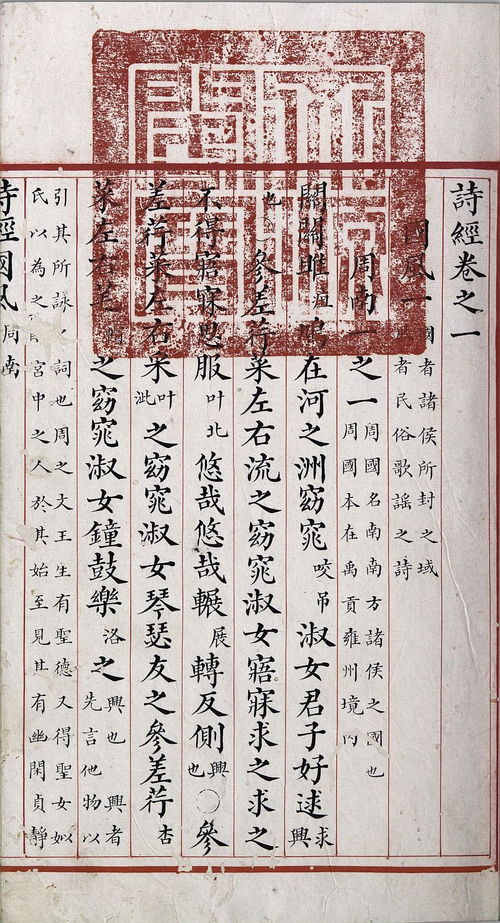 詩經卷之一
國風一國者諸侯所封之域
者民俗歌謠之詩
周南一之一周國名南南方諸侯之國也
周國本在禹貢雍州境内
關關雎疽鳩在河之洲窈窕咬吊淑女君子好逑求興
也參差荇菜左右流之窈窕淑女寤寐求之求之
不得寤寐思服叶北悠哉悠哉輾展轉反側興也○參
差荇菜左右采叶泚之窈窕淑女琴瑟友之參差荇杏
菜左右芼之窈窕淑女鐘鼓樂洛之興也興者
先言他物以
引其所詠之詞也周之文王生有聖德又得聖女姒
氏以為之宮中之人於其始至見其有幽閑貞靜
詩經國風周南